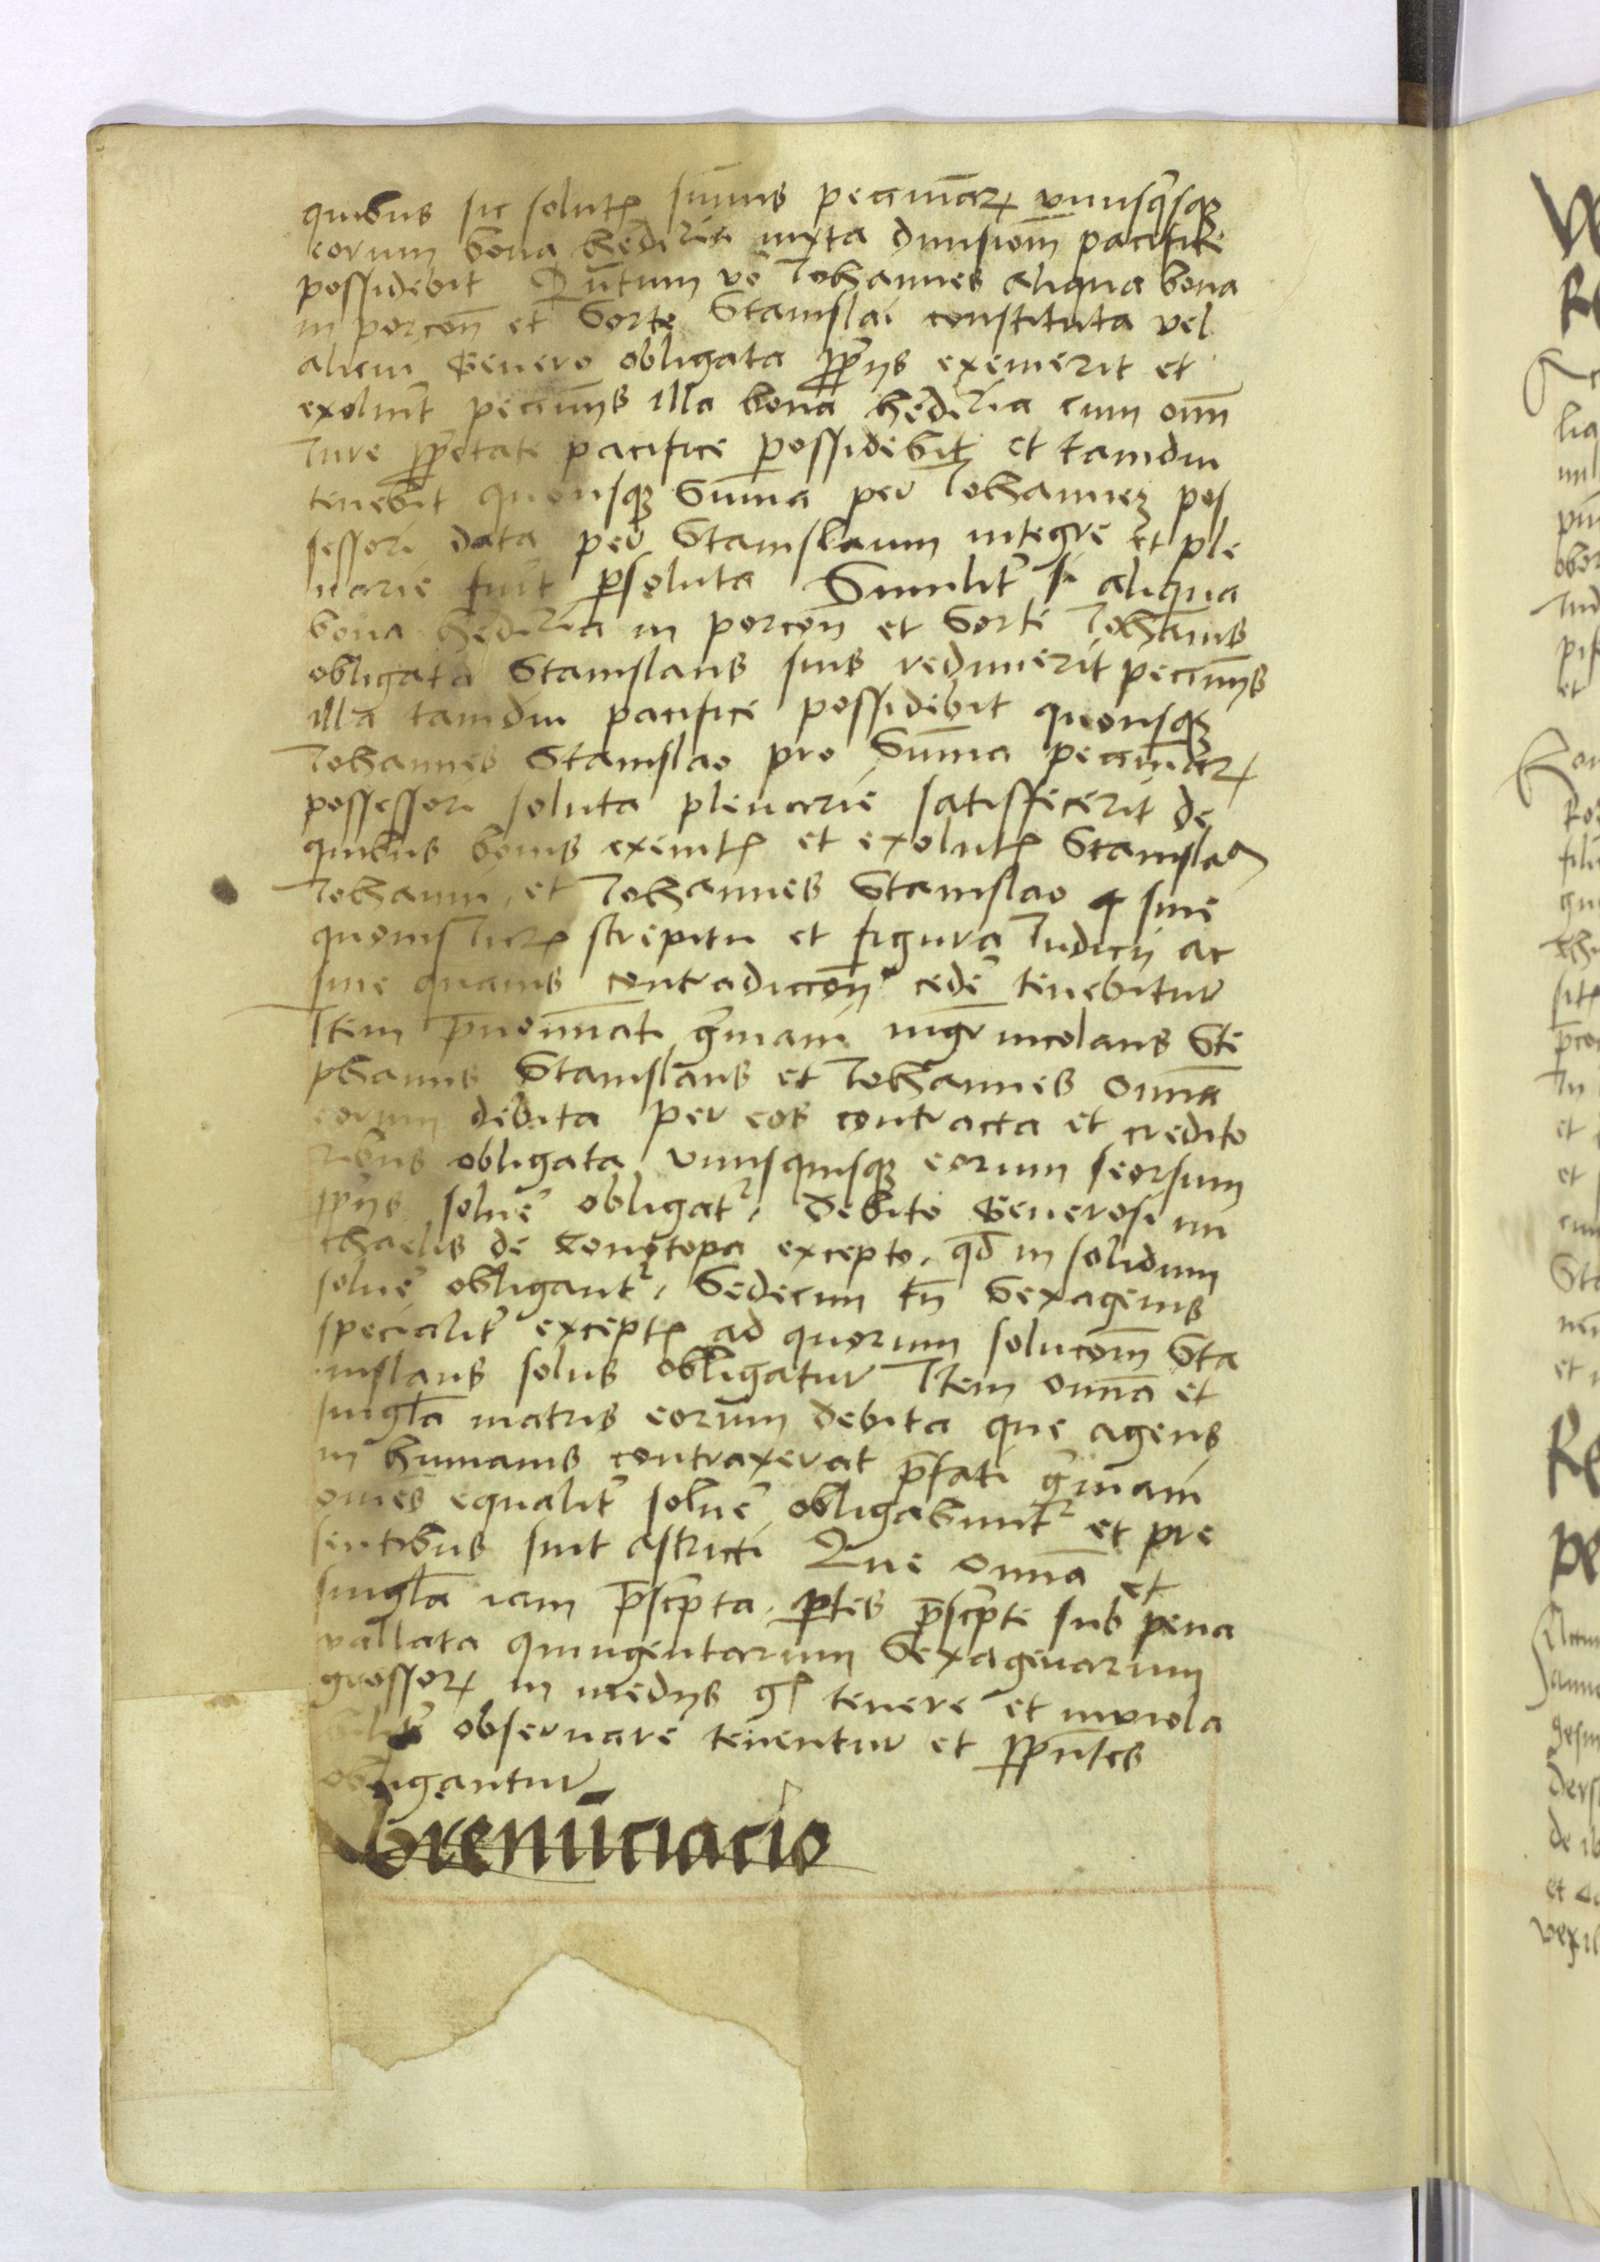 quibus sic solutꝭ sum̄is pecuniaꝝ vnusq̄sqꝫ
eorum bona hēditaria iuxta diuisiōm pacifice
possidebit Qn̄tum vō Iohannes aliqua bona
in porcōn et Sorte Stanislai constituta vel
alicui Genero obligata ꝓprijs exemerit et
exoluīt pecunijs illa bona hēditaria cum omī
Iure ꝓprietate pacifice possidebit et tamdiu
tenebit quousqꝫ Sum̄a per Iohannez pos
sessori data per Stanislaum integre et ple
narie fuīt ꝑsoluta Similit̄ si aliqua
bona hēditaria in porcōn et Sorte Iohānis
obligata Stanislaus suis redimerit pecunijs
illa tamdiu pacifice possidebit quousqꝫ
Iohannes Stanislao pro Sum̄a pecuniaꝝ
possessori soluta plenarie satisfecerit de
quibus bonis exemptꝭ et exolutꝭ Stanislaus
Iohanni et Iohannes Stanislao sine
quouis Iurꝭ strepitu et figura Iudicij ac
sine quauis contradiccōn cedē tenebitur
Item p̄nom̄iati ḡmani nigr nicolaus Ste
phanus Stanislaus et Iohannes om̄ia
eorum debita per eos contracta et credito
ribus obligata vnusquisqꝫ eorum seorsum
ꝓprijs soluē obligat̄ debito Generosi mi
chaelis de Conotopa excepto qd̄ in solidum
soluē obligant̄ Sedecim tn̄ Sexagenis
specialit̄ exceptꝭ ad quorum solucōm Sta
nislaus solus obligatur Item om̄ia et
singl̄a matris eorum debita que agens
in humanis contraxerat p̄fati ḡmani
om̄es equalit̄ soluē obligabunt̄ et pre
sentibus sunt astricti Que om̄ia et
singl̄a iam p̄scpta ptes p̄scpte sub pena
vallata quingentarum Sexagenarum
grossoꝝ in medijs gꝭ tenere et inuiola
bilit̄ obseruare tenentur et ꝓpn̄tes
obligantur
brenunciacio